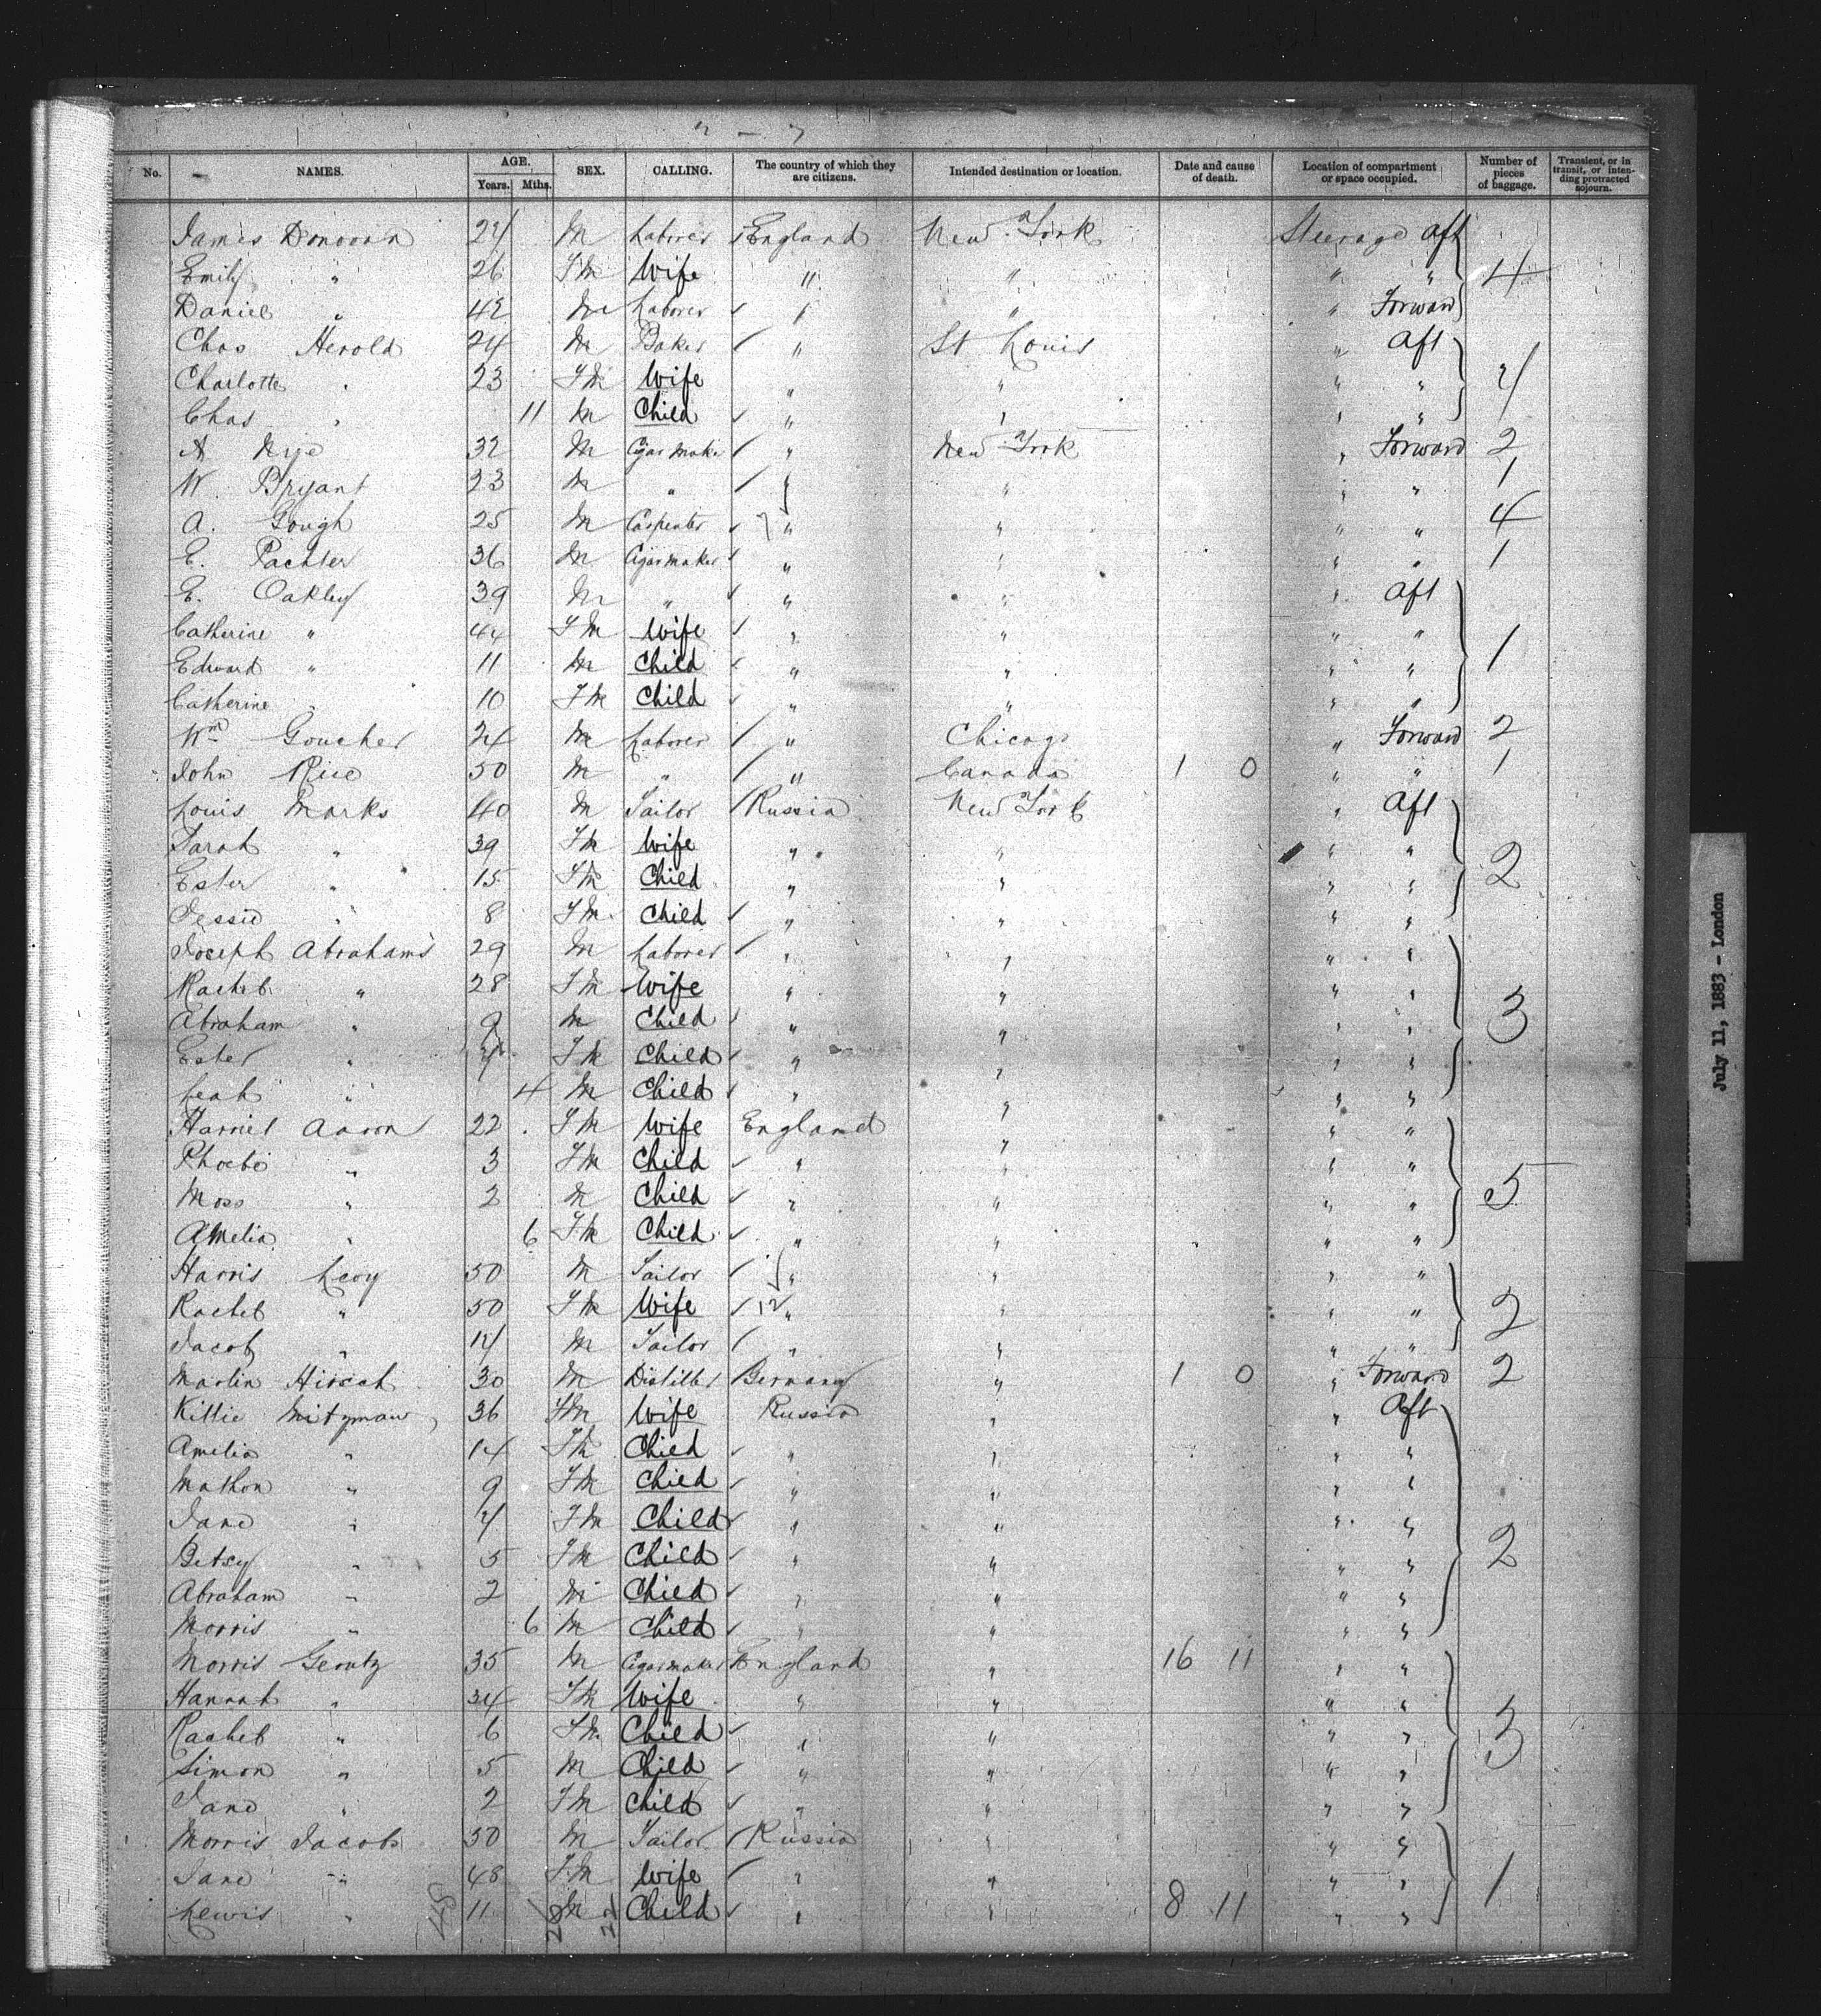 No. NAMES. AGE. Years. Mths. SEX. CALLING. The country of which they are citizens. Intended destination or location. Date and cause of death. Location of compartment or space occupied. Number of pieces of baggage. Transient, or in transit, or intending protracted sojourn.
James Donovan M Laborer England New York Steerage Aft
Emily " 26 Fm Wife " " " " 4
Daniel " 42 M Laborer " " " Forward
Chas Herold 24 M Baker " St Louis " Aft
Charlotte " 23 Fm Wife " " " "
Chas " 11 M Child " " " "
A Nye 32 M Cigar Maker " New York " Forward 2
W. Bryant 23 M " " " " " 1
A. Gough 25 M Carpenter " " " " 4
E. Pachter 36 M Cigarmaker " " " " 1
E. Oakley 39 M " " " " Aft
Catherine " 44 Fm Wife " " " " 1
Edward " 11 M Child " " " "
Catherine " 10 Fm Child " " " "
Wm Goucher 24 M Laborer " Chicago " Forward 2
John Rice 50 M " " Canada 1 0 " " 1
Louis Marks 40 M Tailor Russia New York " Aft
Sarah " 39 Fm Wife " " " " 2
Ester " 15 Fm Child " " " "
Jessie " 8 Fm Child " " " "
Joseph Abrahams 29 M Laborer " " " "
Rachel " 28 Fm Wife " " " "
Abraham " 9 M Child " " " " 3
Ester " Fm Child " " " "
Leah " 4 M Child " " " "
Harriet Aaron 22 Fm Wife England " " "
Phoebe " 3 Fm Child " " " "
Moss " 2 M Child " " " " 5
Amelia " 6 Fm Child " " " "
Harris Levy 50 M Tailor " " " "
Rachel " 50 Fm Wife " " " " 2
Jacob " M Tailor " " " "
Martin Hirsch 30 M Distiller Germany " 1 0 " Forward 2
Kittie Mitzman 36 Fm Wife Russia " " Aft
Amelia " 14 Fm Child " " " "
Mathon " 9 Fm Child " " " "
Jane " Fm Child " " " "
Betsy " 5 Fm Child " " " " 2
Abraham " 2 M Child " " " "
Morris " 6 M Child " " " "
Morris Gerutz 35 M Cigarmaker England " 16 11 " "
Hannah " 34 Fm Wife " " " "
Rachel " 6 Fm Child " " " " 3
Simon " 5 M Child " " " "
Jane " 2 Fm Child " " " "
Morris Jacobs 50 M Tailor Russia " " "
Jane " 48 Fm Wife " " " " 1
Lewis " 11 M Child " " 8 11 " "
July 11, 1883 - London